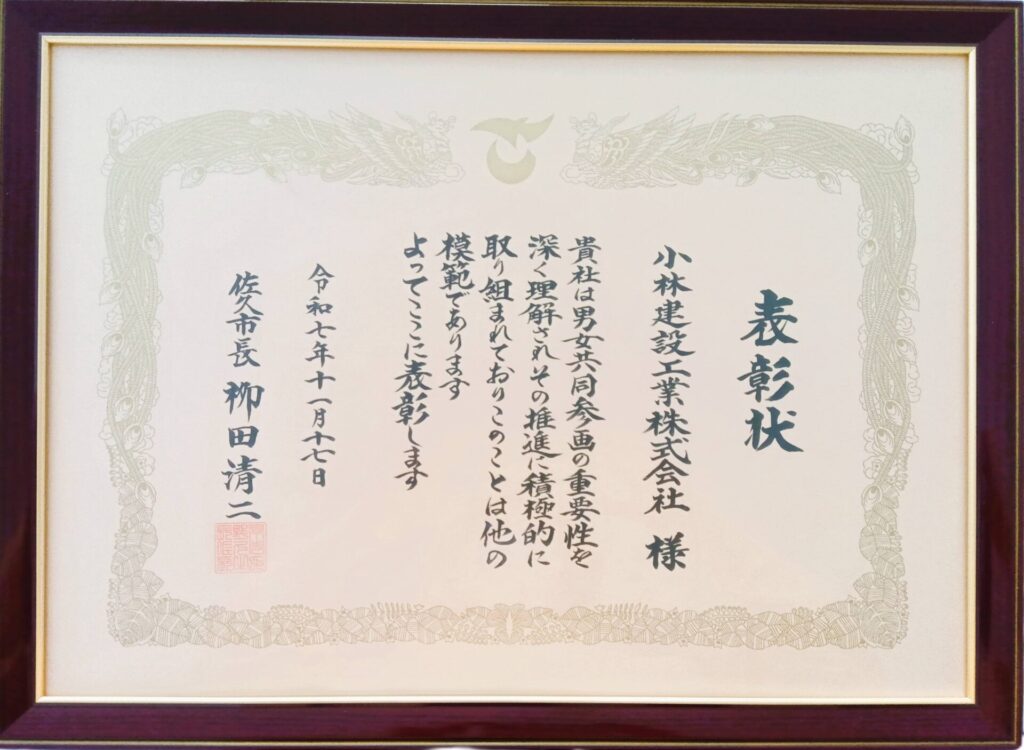 表彰状
小林建設工業株式会社 様
貴社は男女共同参画の重要性を
深く理解されその推進に積極的に
取り組まれておりこのことは他の
模範であります
よってここに表彰します
令和七年十一月十七日
佐久市長 栁田清二